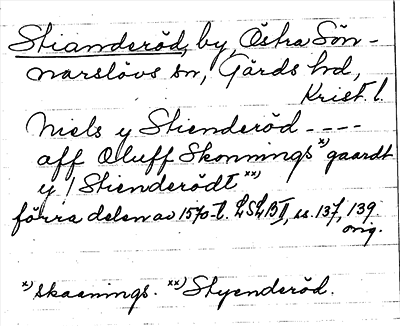 Stianderöd, by, Östra Sön-
narslövs sn, Gärds hd,
Krist. l.
Niels y Stienderöd ----
aff Oluff Skonnings x) gaardt
y / Stienderödt xx)
förra delen av 1570-t. LSLB II, ss. 137, 139.
orig.
x) skaanings. xx) Styenderöd.